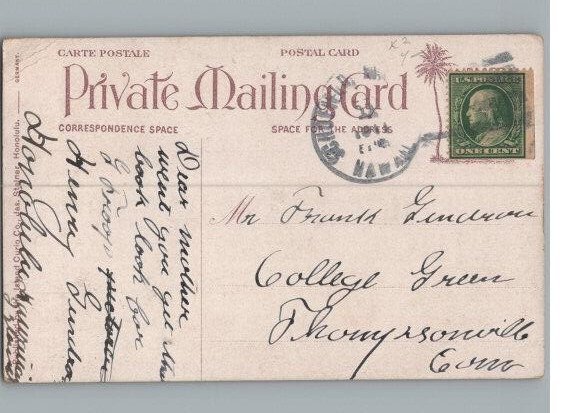 CARTE POSTALE
POSTAL CARD
Private Mailing Card
CORRESPONDENCE SPACE
SPACE FOR THE ADDRESS
GERMANY.
U.S. POSTAGE
ONE CENT
HAWAII
Dear mother
went you get this
book look for
Henry Gendron
Honolulu
Mr Frank Gendron
College Green
Thompsonville
Conn